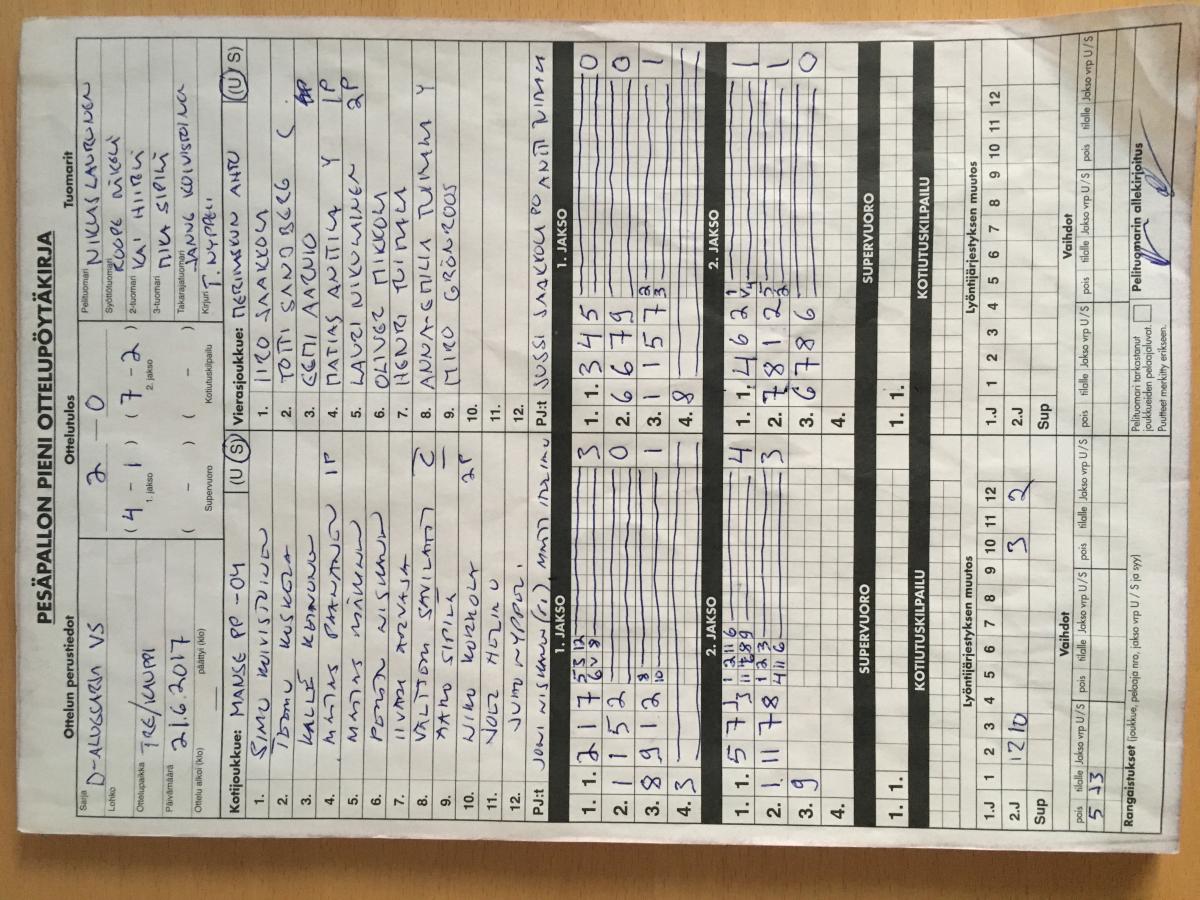 PESÄPALLON PIENI OTTELUPÖYTÄKIRJA
Ottelun perustiedot
Ottelutulos
Tuomarit
Sarja D-ALUESARJA VS
Lohko
Ottelupaikka TRE/KAUPPI
Päivämäärä 21.6.2017
Ottelu alkoi (klo) päättyi (klo)
2 – 0
( 4 – 1 ) ( 7 – 2 )
1. jakso 2. jakso
( – ) ( – )
Supervuoro Kotiutuskilpailu
Pelituomari NIKLAS LAURUNEN
Syöttötuomari ROOPE MIKOLA
2-tuomari KAI HIITELÄ
3-tuomari MIKA SIPILÄ
Takarajatuomari JANNE KOIVISTOINEN
Kirjuri T. NYPPELI
Kotijoukkue: MANSE PP -04 (U S)
1. SIMO KOIVISTOINEN
2. KUSKOLA
3. KALLE
4. MATIAS PAANANEN 1P
5. MATIAS MÄKINEN
6. NISKANEN
7. IIVARI ARVAJA
8. VALTTERI SAVILAHTI
9. AARO SIPILÄ
10. NIKO KUKKOLA 2P
11.
12. JUHO NYPPELI
PJ:t JONI NISKANEN (P.J.) MATTI
Vierasjoukkue: MERIMASKUN AHTO (U S)
1. IIRO JAAKKOLA
2. TOTTI SANDBERG C
3. EEMI AARNIO
4. MATIAS ANTTILA Y 1P
5. LAURI NIKULAINEN 2P
6. OLIVER MIKKOLA
7. HENRI TUIMALA
8. ANNA-EMILIA TUIMALA Y
9. MIRO GRÖNROOS
10.
11.
12.
PJ:t JUSSI JAAKKOLA PJ ANTTI TUIMALA
1. JAKSO
1. 1. 2 1 7 5 5 12 6 V 8 3
2. 1 1 5 2 0
3. 8 9 1 2 8 10 1
4. 3
1. JAKSO
1. 1. 3 4 5 0
2. 6 6 7 9 0
3. 1 1 5 7 2 3 1
4. 8
2. JAKSO
1. 1. 5 7 J3 1 2 11 6 11 7 8 9 4
2. 1 11 7 8 1 2 3 4 11 6 3
3. 9
4.
2. JAKSO
1. 1. 4 6 2 1 V4 1
2. 7 8 1 2 5 2 1
3. 6 7 8 6 0
4.
SUPERVUORO
1. 1.
SUPERVUORO
1. 1.
KOTIUTUSKILPAILU
KOTIUTUSKILPAILU
Lyöntijärjestyksen muutos
1.J 1 2 3 4 5 6 7 8 9 10 11 12
2.J 12 10 3 2
Sup
Lyöntijärjestyksen muutos
1.J 1 2 3 4 5 6 7 8 9 10 11 12
2.J
Sup
Vaihdot
pois tilalle Jakso vrp U/S pois tilalle Jakso vrp U/S pois tilalle Jakso vrp U/S
5 J3
Vaihdot
pois tilalle Jakso vrp U/S pois tilalle Jakso vrp U/S pois tilalle Jakso vrp U/S
Rangaistukset (joukkue, pelaaja nro, jakso vrp U / S ja syy)
Pelituomari tarkastanut
joukkueiden pelaajaluvat.
Puutteet merkitty erikseen.
Pelituomarin allekirjoitus